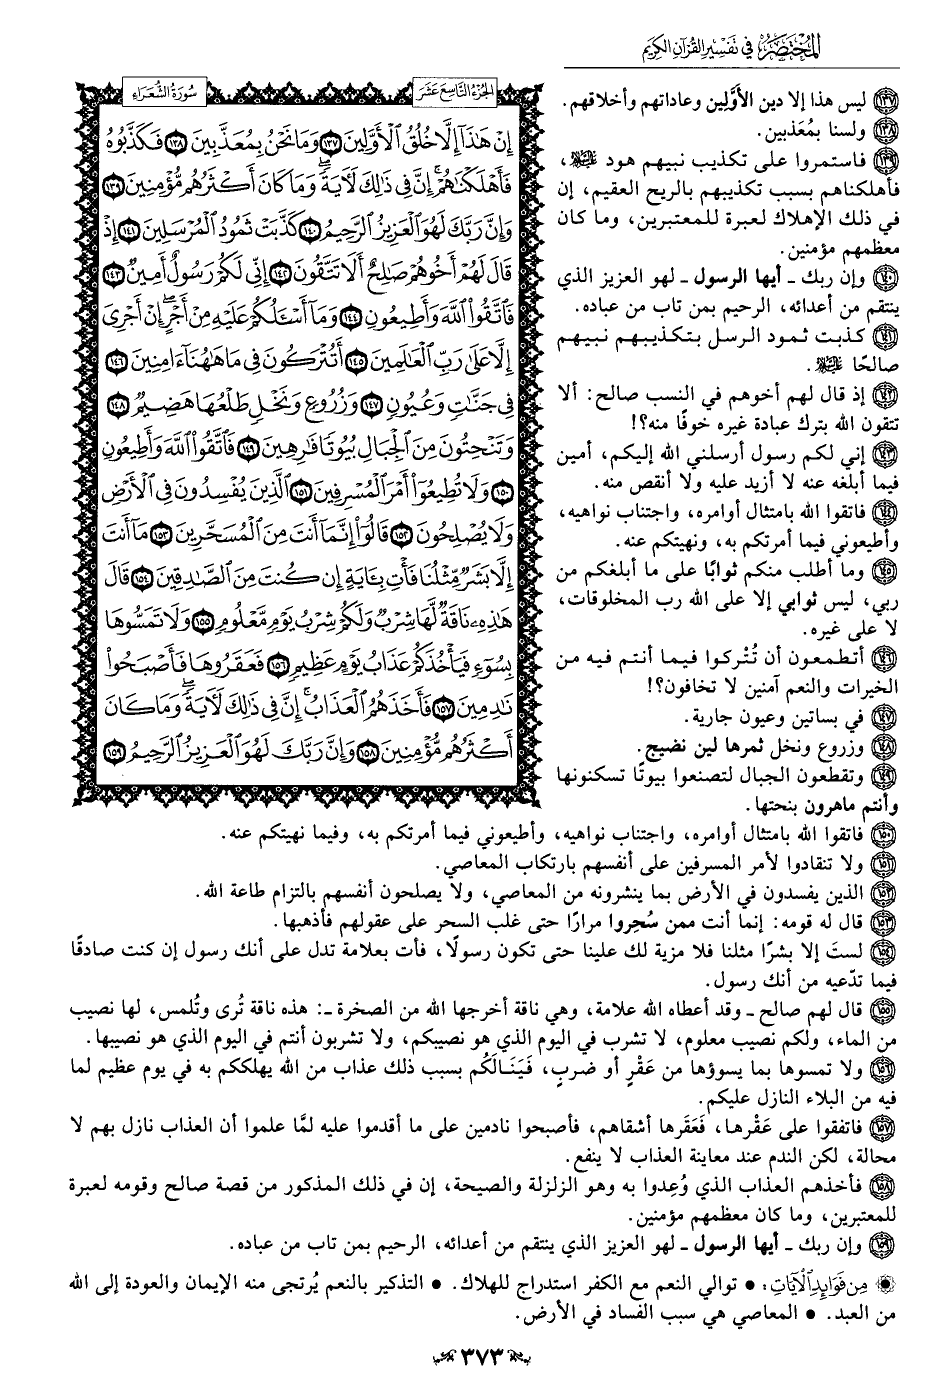 المختصر في تفسير القرآن الكريم
الجزء التاسع عشر
سورة الشعراء
إِنْ هَٰذَا إِلَّا خُلُقُ الْأَوَّلِينَ ١٣٧ وَمَا نَحْنُ بِمُعَذَّبِينَ ١٣٨ فَكَذَّبُوهُ
فَأَهْلَكْنَاهُمْ إِنَّ فِي ذَٰلِكَ لَآيَةً وَمَا كَانَ أَكْثَرُهُم مُّؤْمِنِينَ ١٣٩
وَإِنَّ رَبَّكَ لَهُوَ الْعَزِيزُ الرَّحِيمُ ١٤٠ كَذَّبَتْ ثَمُودُ الْمُرْسَلِينَ ١٤١ إِذْ
قَالَ لَهُمْ أَخُوهُمْ صَالِحٌ أَلَا تَتَّقُونَ ١٤٢ إِنِّي لَكُمْ رَسُولٌ أَمِينٌ ١٤٣
فَاتَّقُوا اللَّهَ وَأَطِيعُونِ ١٤٤ وَمَا أَسْأَلُكُمْ عَلَيْهِ مِنْ أَجْرٍ إِنْ أَجْرِيَ
إِلَّا عَلَىٰ رَبِّ الْعَالَمِينَ ١٤٥ أَتُتْرَكُونَ فِي مَا هَاهُنَا آمِنِينَ ١٤٦
فِي جَنَّاتٍ وَعُيُونٍ ١٤٧ وَزُرُوعٍ وَنَخْلٍ طَلْعُهَا هَضِيمٌ ١٤٨
وَتَنْحِتُونَ مِنَ الْجِبَالِ بُيُوتًا فَارِهِينَ ١٤٩ فَاتَّقُوا اللَّهَ وَأَطِيعُونِ
١٥٠ وَلَا تُطِيعُوا أَمْرَ الْمُسْرِفِينَ ١٥١ الَّذِينَ يُفْسِدُونَ فِي الْأَرْضِ
وَلَا يُصْلِحُونَ ١٥٢ قَالُوا إِنَّمَا أَنتَ مِنَ الْمُسَحَّرِينَ ١٥٣ مَا أَنتَ
إِلَّا بَشَرٌ مِّثْلُنَا فَأْتِ بِآيَةٍ إِن كُنتَ مِنَ الصَّادِقِينَ ١٥٤ قَالَ
هَٰذِهِ نَاقَةٌ لَّهَا شِرْبٌ وَلَكُمْ شِرْبُ يَوْمٍ مَّعْلُومٍ ١٥٥ وَلَا تَمَسُّوهَا
بِسُوءٍ فَيَأْخُذَكُمْ عَذَابُ يَوْمٍ عَظِيمٍ ١٥٦ فَعَقَرُوهَا فَأَصْبَحُوا
نَادِمِينَ ١٥٧ فَأَخَذَهُمُ الْعَذَابُ إِنَّ فِي ذَٰلِكَ لَآيَةً وَمَا كَانَ
أَكْثَرُهُم مُّؤْمِنِينَ ١٥٨ وَإِنَّ رَبَّكَ لَهُوَ الْعَزِيزُ الرَّحِيمُ ١٥٩
١٣٧ ليس هذا إلا دين الأوَّلِين وعاداتهم وأخلاقهم.
١٣٨ ولسنا بمُعَذبين.
١٣٩ فاستمروا على تكذيب نبيهم هود عليه السلام،
فأهلكناهم بسبب تكذيبهم بالريح العقيم، إن
في ذلك الإهلاك لعبرة للمعتبرين، وما كان
معظمهم مؤمنين.
١٤٠ وإن ربك ـ أيها الرسول ـ لهو العزيز الذي
ينتقم من أعدائه، الرحيم بمن تاب من عباده.
١٤١ كذبت ثمود الرسل بتكذيبهم نبيهم
صالحًا عليه السلام.
١٤٢ إذ قال لهم أخوهم في النسب صالح: ألا
تتقون الله بترك عبادة غيره خوفًا منه؟!
١٤٣ إني لكم رسول أرسلني الله إليكم، أمين
فيما أبلغه عنه لا أزيد عليه ولا أنقص منه.
١٤٤ فاتقوا الله بامتثال أوامره، واجتناب نواهيه،
وأطيعوني فيما أمرتكم به، ونهيتكم عنه.
١٤٥ وما أطلب منكم ثوابًا على ما أبلغكم من
ربي، ليس ثوابي إلا على الله رب المخلوقات،
لا على غيره.
١٤٦ أتطمعون أن تُتْركوا فيما أنتم فيه من
الخيرات والنعم آمنين لا تخافون؟!
١٤٧ في بساتين وعيون جارية.
١٤٨ وزروع ونخل ثمرها لين نضيج.
١٤٩ وتقطعون الجبال لتصنعوا بيوتًا تسكنونها
وأنتم ماهرون بنحتها.
١٥٠ فاتقوا الله بامتثال أوامره، واجتناب نواهيه، وأطيعوني فيما أمرتكم به، وفيما نهيتكم عنه.
١٥١ ولا تنقادوا لأمر المسرفين على أنفسهم بارتكاب المعاصي.
١٥٢ الذين يفسدون في الأرض بما ينشرونه من المعاصي، ولا يصلحون أنفسهم بالتزام طاعة الله.
١٥٣ قال له قومه: إنما أنت ممن سُحِروا مرارًا حتى غلب السحر على عقولهم فأذهبها.
١٥٤ لستَ إلا بشرًا مثلنا فلا مزية لك علينا حتى تكون رسولًا، فأت بعلامة تدل على أنك رسول إن كنت صادقًا
فيما تدّعيه من أنك رسول.
١٥٥ قال لهم صالح ـ وقد أعطاه الله علامة، وهي ناقة أخرجها الله من الصخرة ـ: هذه ناقة تُرى وتُلمس، لها نصيب
من الماء، ولكم نصيب معلوم، لا تشرب في اليوم الذي هو نصيبكم، ولا تشربون أنتم في اليوم الذي هو نصيبها.
١٥٦ ولا تمسوها بما يسوؤها من عَقْرٍ أو ضربٍ، فَيَنَالَكُم بسبب ذلك عذاب من الله يهلككم به في يوم عظيم لما
فيه من البلاء النازل عليكم.
١٥٧ فاتفقوا على عَقْرها، فَعَقَرها أشقاهم، فأصبحوا نادمين على ما أقدموا عليه لمَّا علموا أن العذاب نازل بهم لا
محالة، لكن الندم عند معاينة العذاب لا ينفع.
١٥٨ فأخذهم العذاب الذي وُعِدوا به وهو الزلزلة والصيحة، إن في ذلك المذكور من قصة صالح وقومه لعبرة
للمعتبرين، وما كان معظمهم مؤمنين.
١٥٩ وإن ربك ـ أيها الرسول ـ لهو العزيز الذي ينتقم من أعدائه، الرحيم بمن تاب من عباده.
مِن فَوَائِدِ الْآيَاتِ: • توالي النعم مع الكفر استدراج للهلاك. • التذكير بالنعم يُرتجى منه الإيمان والعودة إلى الله
من العبد. • المعاصي هي سبب الفساد في الأرض.
٣٧٣